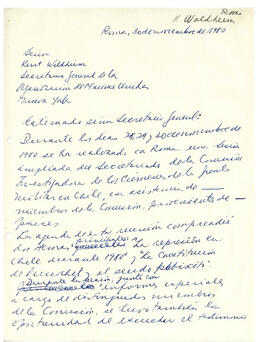 Roma
K. Waldheim
Roma, 30 de noviembre de 1980
Señor
Kurt Waldheim
Secretario General de la
Organización de Naciones Unidas
Nueva York
Estimado señor Secretario General:
Durante los días 28, 29 y 30 de noviembre de
1980 se ha realizado en Roma una sesión
ampliada del Secretariado de la Comisión
Investigadora de los Crímenes de la Junta
Militar en Chile, con asistencia de ——
miembros de la Comisión, provenientes de —
países.
La agenda de esta reunión comprendió
dos temas principales: La represión en
Chile durante 1980 y la Constitución
de Pinochet y el seudo plebiscito.
Durante la sesión, junto con
informes especiales
a cargo de distinguidos miembros
de la Comisión, se tuvo también la
oportunidad de escuchar el testimonio